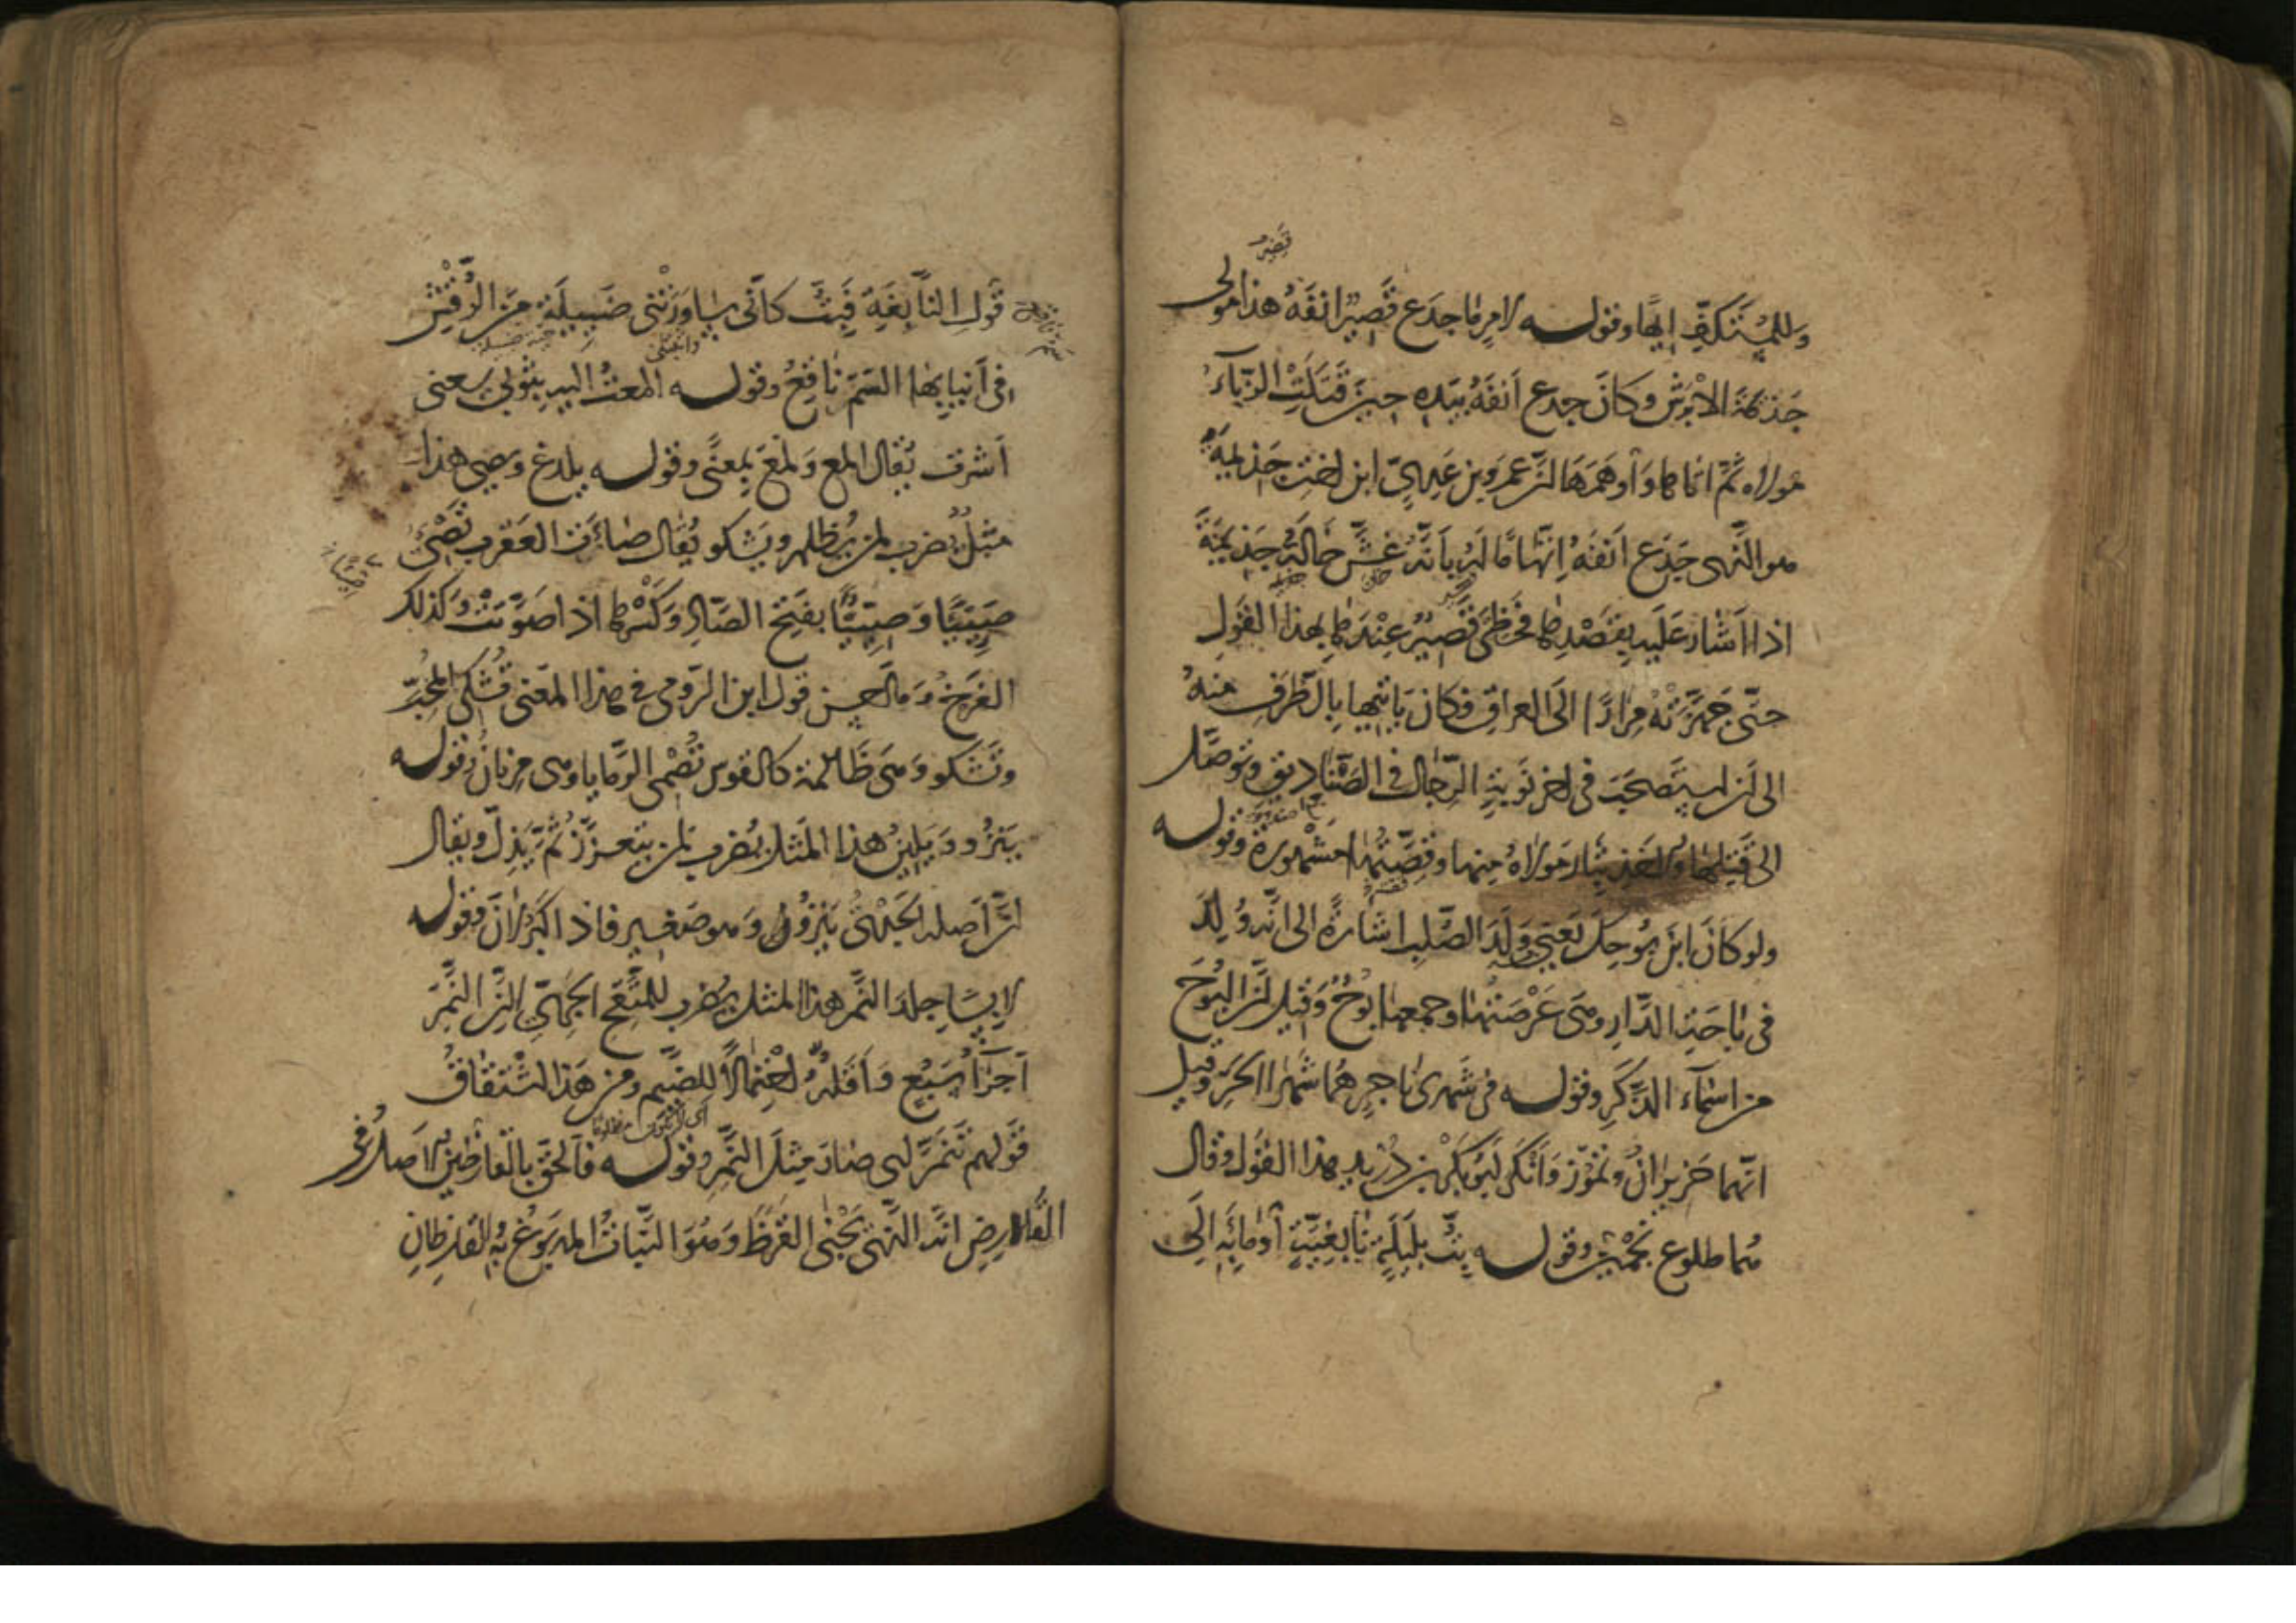 وللمستكف إيها وقوله لامر ما جدع قصير انفه هذا مولى
قصير
جذيمة الابرش وكان جدع انفه بيده حين قتلت الزباء
مولاه ثم اتاها واوهمها ان عمرو بن عدي ابن اخت جذيمة
هو الذي جدع انفه اتهاما له بانه غش خاله جذيمة
اذ اشار عليه بقصدها فحظي قصير عندها بهذا القول
حتى جهزته مرارا الى العراق فكان ياتيها بالطرف منه
الى ان استصحب في اخر نوبة الرجال في الصناديق وتوصل
الى قتلها والاخذ بثار مولاه منها وقصتها مشهورة وقوله
ولو كان ابن بوحك يعني ولد الصلب اشارة الى انه ولد
في باحة الدار وهي عرصتها وجمعها بوح وقيل ان البوح
من اسماء الذكر وقوله في شهري ناجر هما شهرا الحر وقيل
انهما حزيران وتموز وانكر ابو بكر بن دريد هذا القول وقال
هما طلوع نجمين وقوله بت بليلة نابغية اوما به الى
قول النابغة فبت كاني ساورتني ضئيلة من الرقش
في انيابها السم ناقع وقوله المعت اليه بثوبي يعني
اشرت يقال المع ولمع بمعنى وقوله يلدغ ويصي هذا
مثل يضرب لمن يظلم ويشكو يقال صاءت العقرب تصئ
صئيا وصئيا بفتح الصاد وكسرها اذا صوتت وكذلك
الفرخ وما احسن قول ابن الرومي في هذا المعنى تشكي المحب
وتشكو وهي ظالمة كالقوس تصمي الرمايا وهي مرنان وقوله
ينزو ويلين هذا المثل يضرب لمن يتعزز ثم يذل ويقال
ان اصله الجدي ينزو وهو صغير فاذا كبر لان وقوله
لابسا جلد النمر هذا المثل يضرب للمتقح الجري لان النمر
اجرأ سبع واقله احتمالا للضيم ومن هذا اشتقاق
قولهم تنمر اي صار مثل النمر وقوله فالحق بالقارظين الاصل في
القارض انه الذي يجني القرظ وهو النبات المدبوغ به القارظان